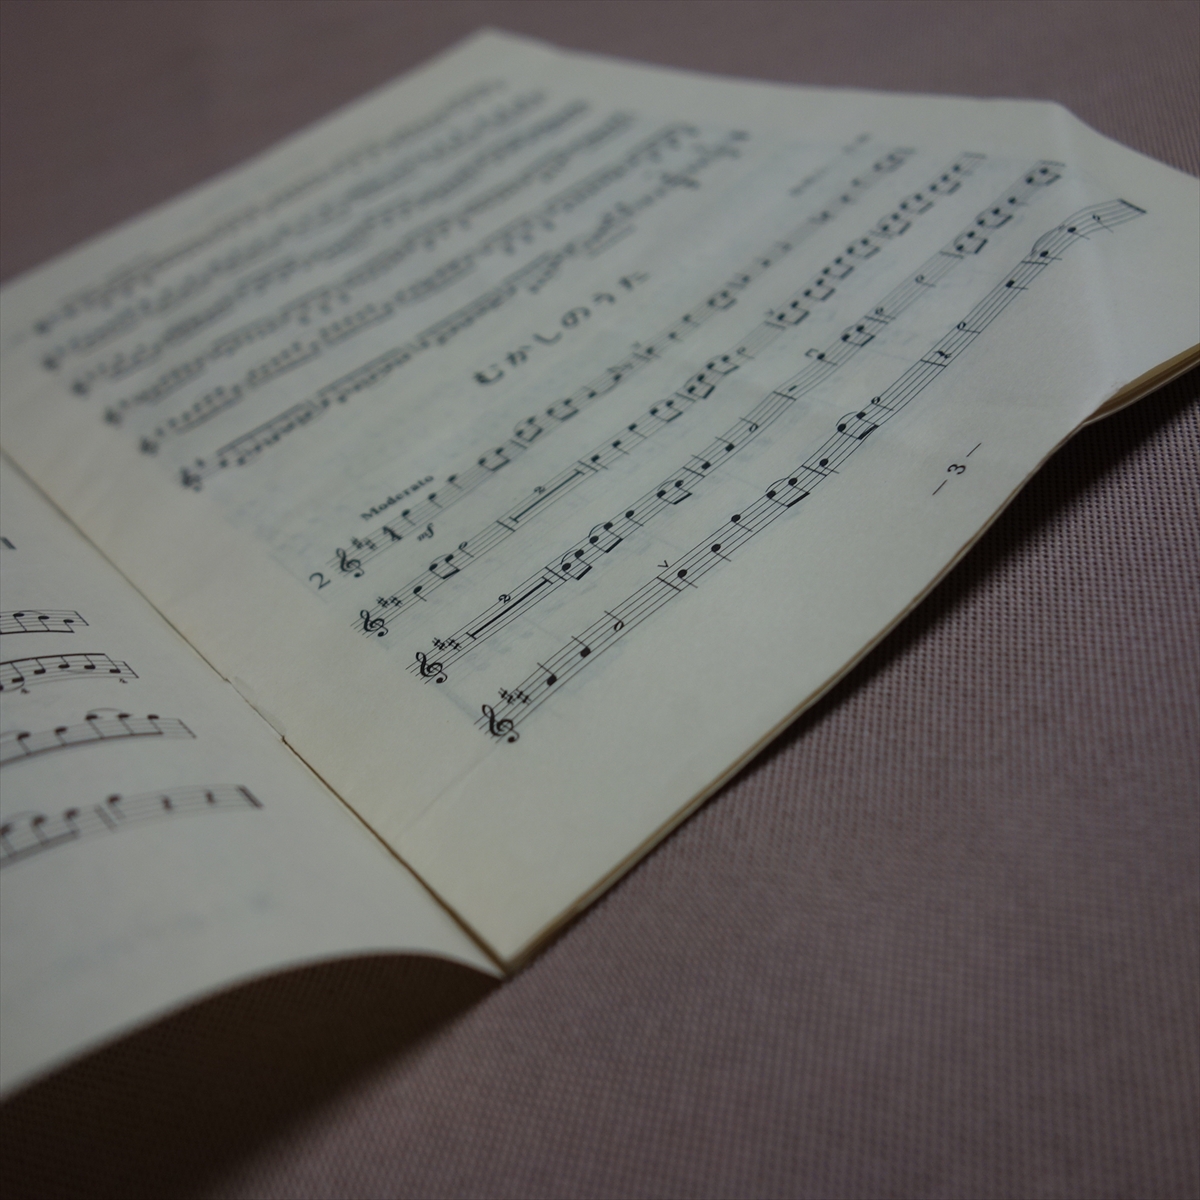 むかしのうた
Moderato
2
mf
2
2
2
V
－3－